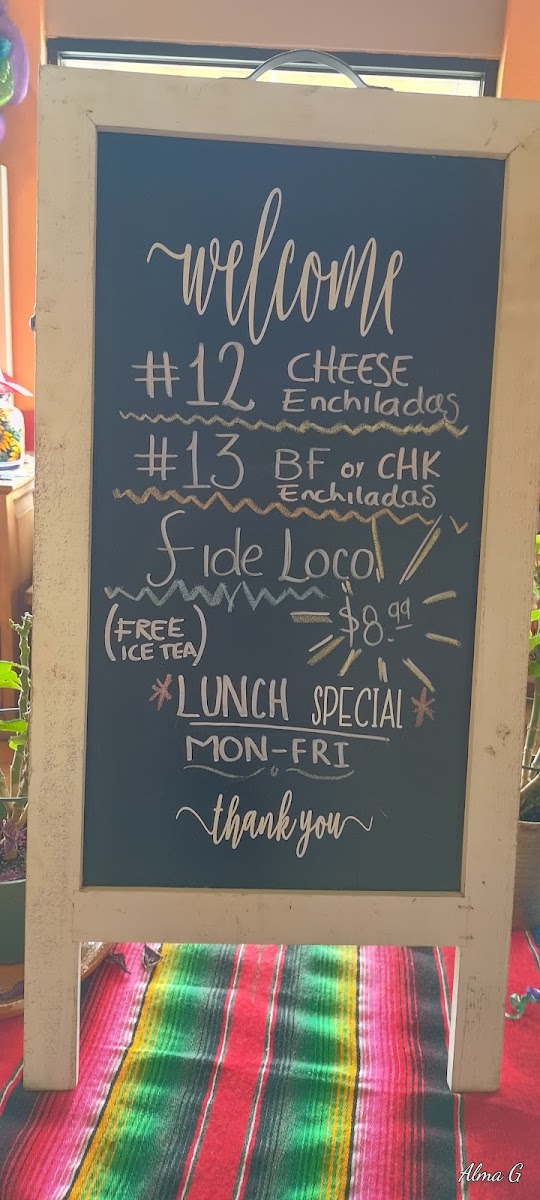 welcome
#12 CHEESE
Enchiladas
#13 BF or CHK
Enchiladas
Fide Loco
(FREE
ICE TEA)
$8.99
*LUNCH SPECIAL*
MON-FRI
thank you
Alma G